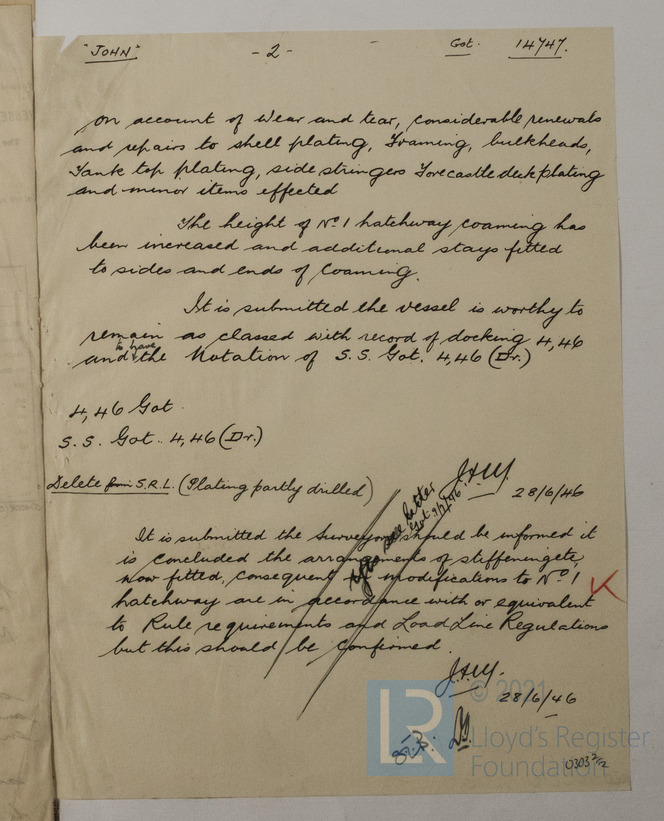 "JOHN" - 2 - Got. 14747.
On account of wear and tear, considerable renewals
and repairs to shell plating, Framing, bulkheads,
Tank top plating, side stringers Forecastle deck plating
and minor items effected
The height of No 1 hatchway coaming has
been increased and additional stays fitted
to sides and ends of Coaming.
It is submitted the vessel is worthy to
remain as classed with record of docking 4,46
and to have the Notation of S.S. Got. 4,46 (Dr.)
4,46 Got.
S.S. Got. 4,46 (Dr.)
Delete from S.R.L. (Plating partly drilled)
J.H.M.
28/6/46
see letter
Got 9/7/46
It is submitted the Surveyors should be informed it
is concluded the arrangements of stiffening etc,
now fitted, consequent to modifications to No 1
hatchway are in accordance with or equivalent
to Rule requirements and Load Line Regulations
but this should be confirmed.
J.H.M.
28/6/46
© 2021
LR Lloyd's Register
Foundation
0303 2/2